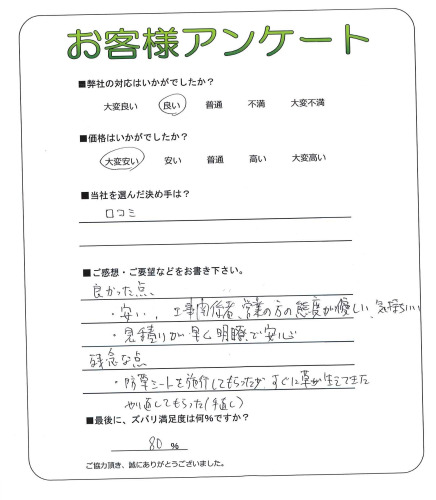 お客様アンケート
■弊社の対応はいかがでしたか?
大変良い 良い 普通 不満 大変不満
■価格はいかがでしたか?
大変安い 安い 普通 高い 大変高い
■当社を選んだ決め手は?
口コミ
■ご感想・ご要望などをお書き下さい。
良かった点、
・安い、工事関係者、営業の方の態度が優しい、気持ちいい
・見積りが早く明瞭で安心
残念な点
・防草シートを施行してもらったが、すぐに草が生えてきた
やり直してもらった(手直し)
■最後に、ズバリ満足度は何%ですか?
80 %
ご協力頂き、誠にありがとうございました。